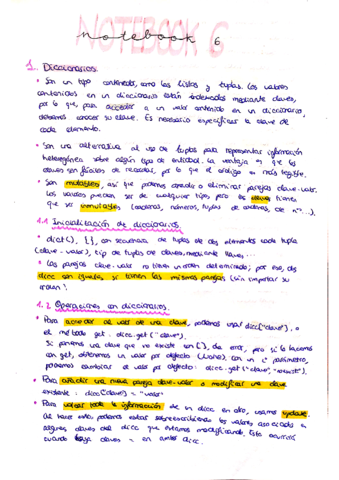 NOTEBOOK 6
notebook 6
1. Diccionarios
• Son un tipo contenedor, como las listas y tuplas. Los valores
contenidos en un diccionario están indexados mediante claves,
por lo que, para acceder a un valor contenido en un diccionario,
debemos conocer su clave. Es necesario especificar la clave de
cada elemento.
• Son una alternativa al uso de tuplas para representar información
heterogénea sobre algún tipo de entidad. La ventaja es que las
claves son fáciles de recordar, por lo que el código es más legible.
• Son mutables, así que podemos añadir o eliminar parejas clave-valor.
Los valores pueden ser de cualquier tipo pero las claves tienen
que ser inmutables (cadenas, números, tuplas de cadenas, de nº...).
1.1 Inicialización de diccionarios
• dict(), {}, con secuencia de tuplas de dos elementos cada tupla
(clave-valor), zip de tuplas de claves, mediante llaves...
• Las parejas clave-valor no tienen un orden determinado; por eso, dos
dicc son iguales si tienen las mismas parejas (sin importar su
orden).
1.2 Operaciones con diccionarios
• Para acceder al valor de una clave, podemos usar dicc["clave"], o
el método get: dicc.get("clave").
Si ponemos una clave que no existe con [], da error, pero si lo hacemos
con get, obtenemos un valor por defecto (None), con un 2º parámetro,
podemos cambiar el valor por defecto: dicc.get("clave",
• Para añadir una nueva pareja clave-valor o modificar una clave
existente: dicc["clave"] = "valor"
• Para volcar toda la información de un dicc en otro, usamos update.
Al hacer esto podemos estar sobreescribiendo los valores asociados a
algunas claves del dicc que estamos modificando. Esto ocurrirá
cuando haya claves = en ambos dicc.